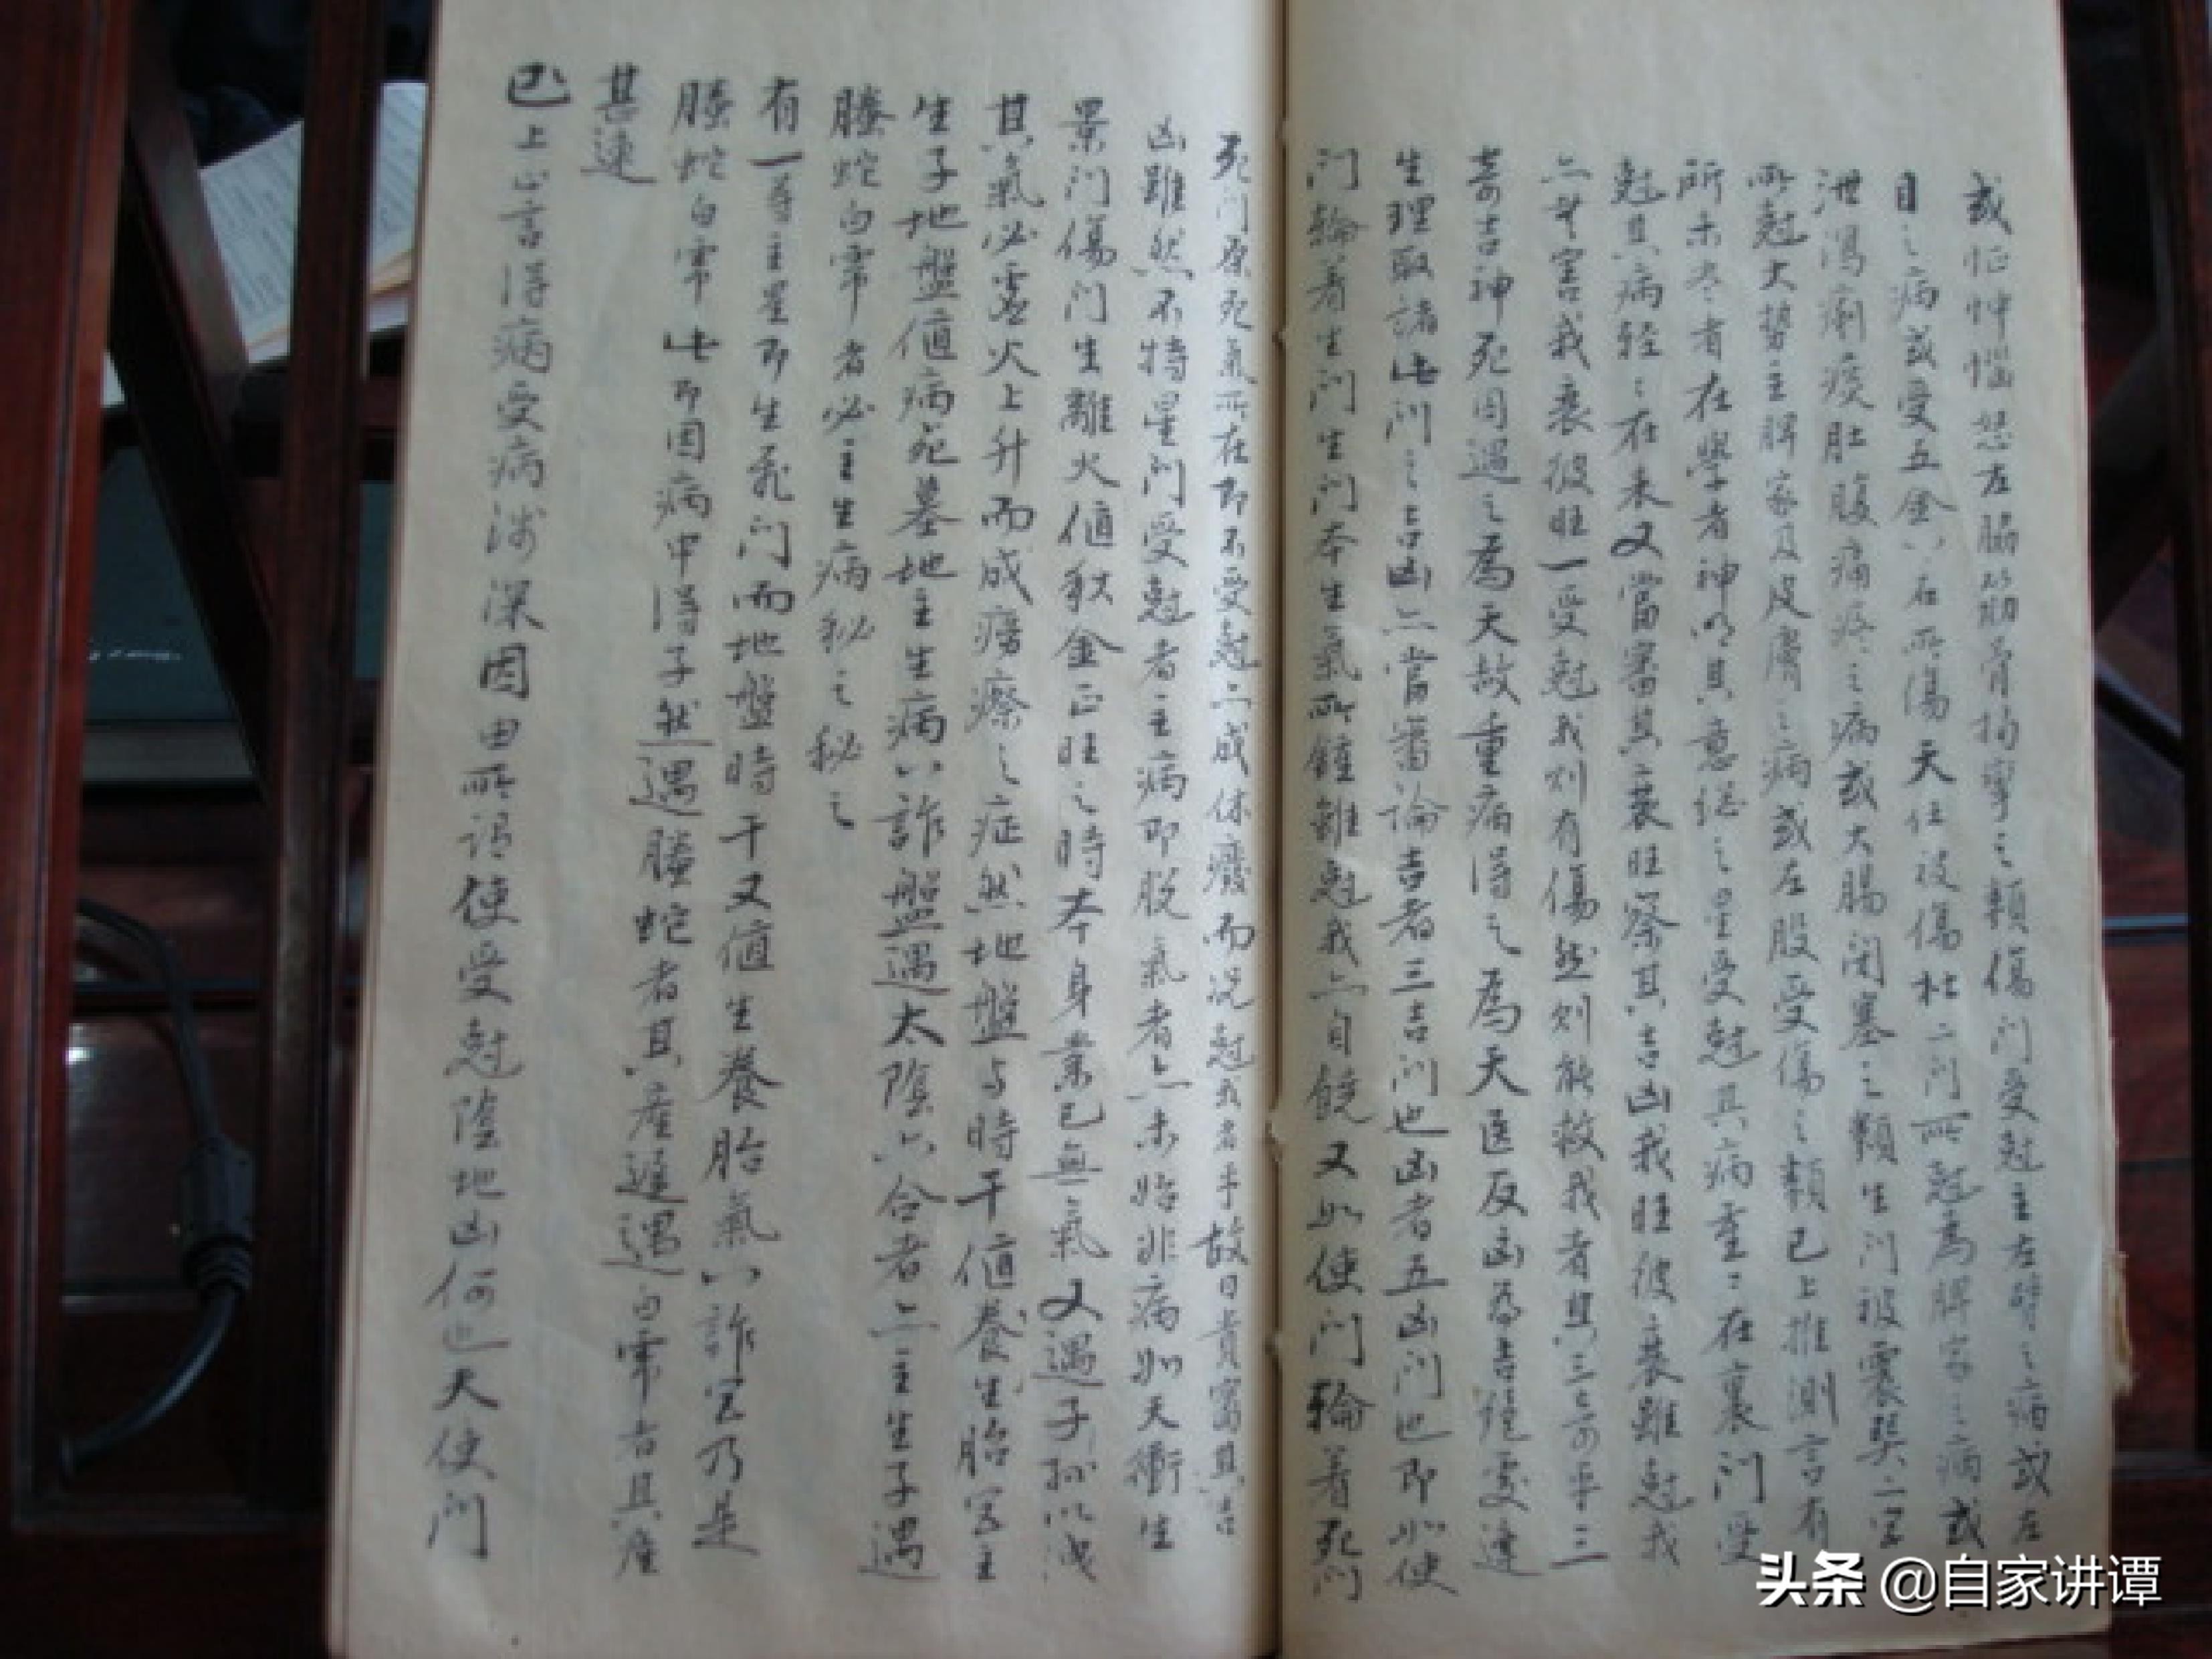 或怔忡惱怒左脇筋骨拘攣之類傷門受尅主左臂之病或左
目之病或受五金八石所傷天任被傷杜二門所尅為脾家之病或
泄瀉痢痰肚腹痛疼之病或大腸闭塞之類生门被震巽二宮
所尅大势主脾家及皮膚之病或左股受傷之類已上推測言有
所未尽者在學者神以其意总之星受尅其病重重在裏门受
尅其病轻轻在未又當審其衰旺察其吉凶我旺彼衰雖尅我
亦無害我衰彼旺一受尅我则有傷然则能救我者其三奇乎三
奇吉神死因遇之為天赦重病得之為天医反凶為吉絕處逢
生理取諸此门之吉凶亦當審論吉者三吉门也凶者五凶门也即如使
门輪着生门生门本生氣所鍾雖尅我亦自饒又如使门輪着死门
死门原死氣所在即不受尅亦成休癈而况尅我者乎故曰貴審其吉
凶雖然不特星门受尅者主病即脱氣者亦未始非病如天衝生
景门傷门生離火值秋金正旺之時本身業已無氣又遇子孫以洩
其氣必虛火上升而成癆瘵之症然地盤与時干值養生胎宮主
生子地盤值病死墓地主生病八詐盤遇太陰六合者亦主生子遇
螣蛇白常者必主生病秘之秘之
有一等主星即生乘门而地盤時干又值生養胎氣八詐宮乃是
螣蛇白常此即因病中得子然遇螣蛇者其產遲遇白常者其產
甚速
已上止言得病受病浅深因由所谓使受尅陰地凶何也天使门
头条 @自家讲谭